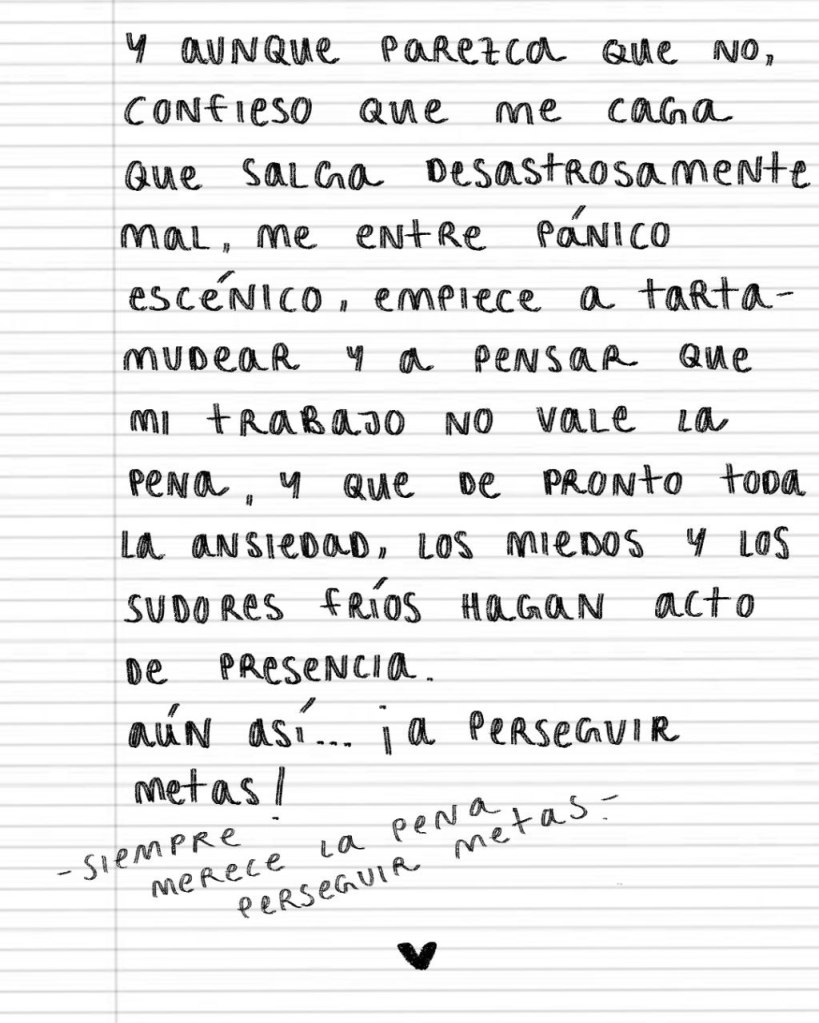 Y AUNQUE PAREZCA QUE NO,
CONFIESO QUE ME CAGA
QUE SALGA DESASTROSAMENTE
MAL, ME ENTRE PÁNICO
ESCÉNICO, EMPIECE A TARTA-
MUDEAR Y A PENSAR QUE
MI TRABAJO NO VALE LA
PENA, Y QUE DE PRONTO TODA
LA ANSIEDAD, LOS MIEDOS Y LOS
SUDORES FRÍOS HAGAN ACTO
DE PRESENCIA.
AÚN ASÍ... ¡A PERSEGUIR
METAS!
- SIEMPRE
MERECE LA PENA
PERSEGUIR METAS. -